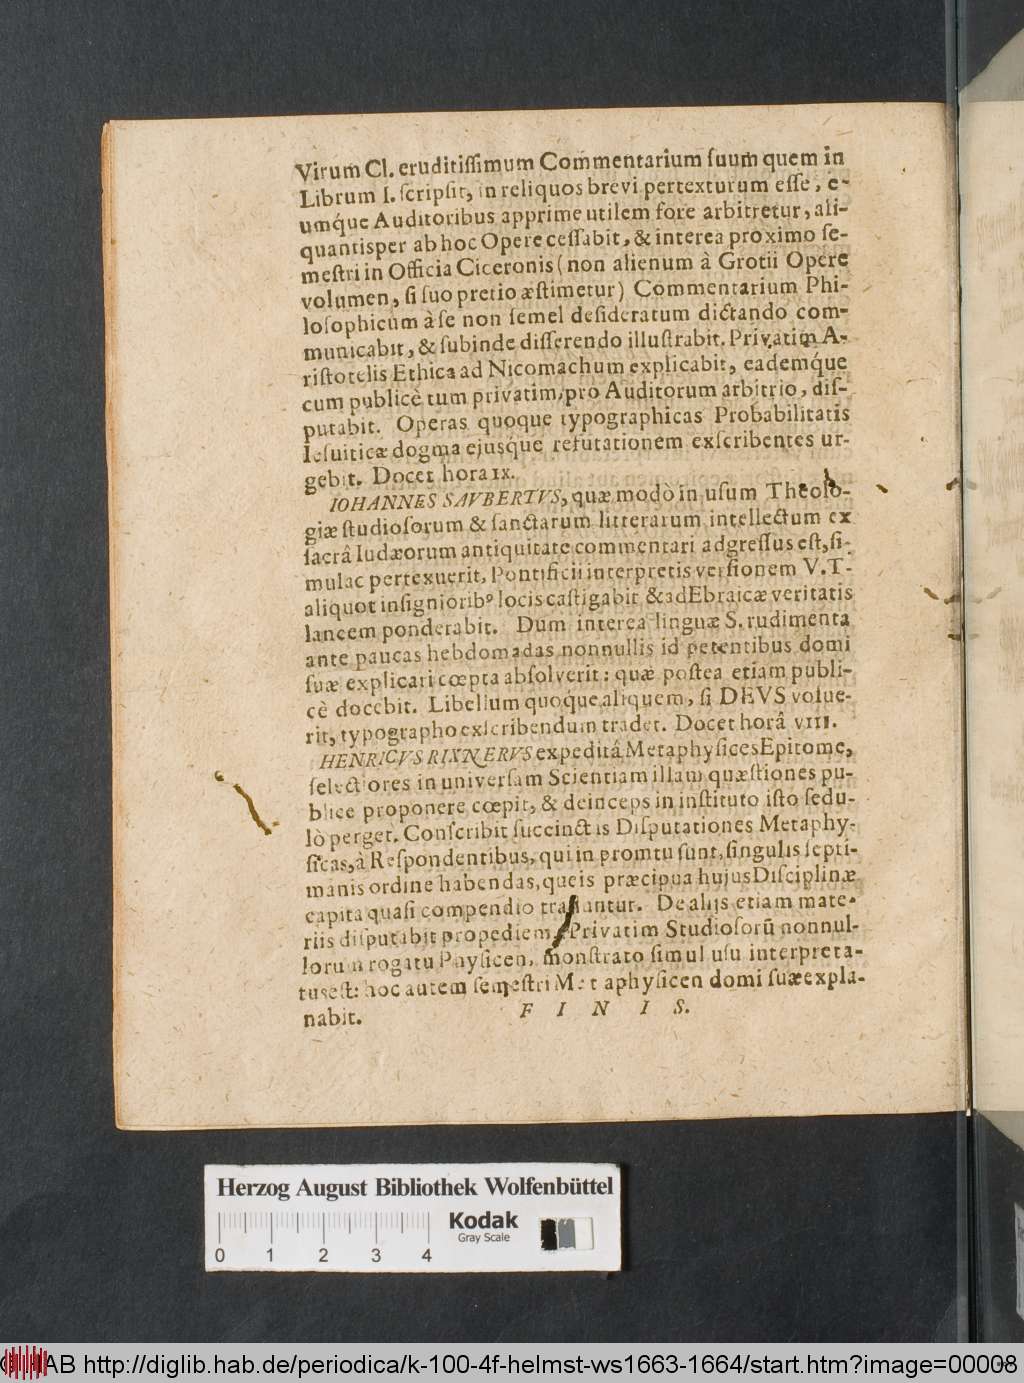 Virum Cl. eruditiſſimum Commentarium ſuum quem in
Librum I. ſcripſit, in reliquos brevi pertexturum eſſe, e-
umq́ue Auditoribus apprime utilem fore arbitretur, ali-
quantisper ab hoc Opere ceſſabit, & interea proximo ſe-
meſtri in Officia Ciceronis (non alienum à Grotii Opere
volumen, ſi ſuo pretio æſtimetur) Commentarium Phi-
loſophicum à ſe non ſemel deſideratum dictando com-
municabit, & ſubinde diſſerendo illuſtrabit. Privatim A-
riſtotelis Ethica ad Nicomachum explicabit, eademq́ue
cum publicè tum privatim, pro Auditorum arbitrio, diſ-
putabit. Operas quoque typographicas Probabilitatis
Ieſuiticæ dogma ejusq́ue refutationem exſcribentes ur-
gebit. Docet hora IX.
IOHANNES SAVBERTVS, quæ modò in uſum Theolo-
giæ ſtudioſorum & ſanctarum litterarum intellectum ex
ſacrâ Iudæorum antiquitate commentari adgreſſus eſt, ſi-
mulac pertexuerit, Pontificii interpretis verſionem V. T.
aliquot inſigniorib⁹ locis caſtigabit & ad Ebraicæ veritatis
lancem ponderabit. Dum interea linguæ S. rudimenta
ante paucas hebdomadas nonnullis id petentibus domi
ſuæ explicari cœpta abſolverit: quæ poſtea etiam publi-
cè docebit. Libellum quoq́ue aliquem, ſi DEVS volue-
rit, typographo exſcribendum tradet. Docet horâ VIII.
HENRICVS RIXNERVS expeditâ Metaphyſices Epitome,
ſelectiores in univerſam Scientiam illam quæſtiones pu-
blice proponere cœpit, & deinceps in inſtituto iſto ſedu-
lò perget. Conſcribit ſuccinctis Diſputationes Metaphy-
ſicas, à Reſpondentibus, qui in promtu ſunt, ſingulis ſepti-
manis ordine habendas, queis præcipua hujus Diſciplinæ
capita quaſi compendio tradantur. De aliis etiam mate-
riis diſputabit propediem. Privatim Studioſorū nonnul-
lorum rogatu Phyſicen, monſtrato ſimul uſu interpreta-
tus eſt: hoc autem ſemeſtri Metaphyſicen domi ſuæ expla-
nabit.
F I N I S.
Herzog August Bibliothek Wolfenbüttel
Kodak
Gray Scale
0 1 2 3 4
© HAB http://diglib.hab.de/periodica/k-100-4f-helmst-ws1663-1664/start.htm?image=00008